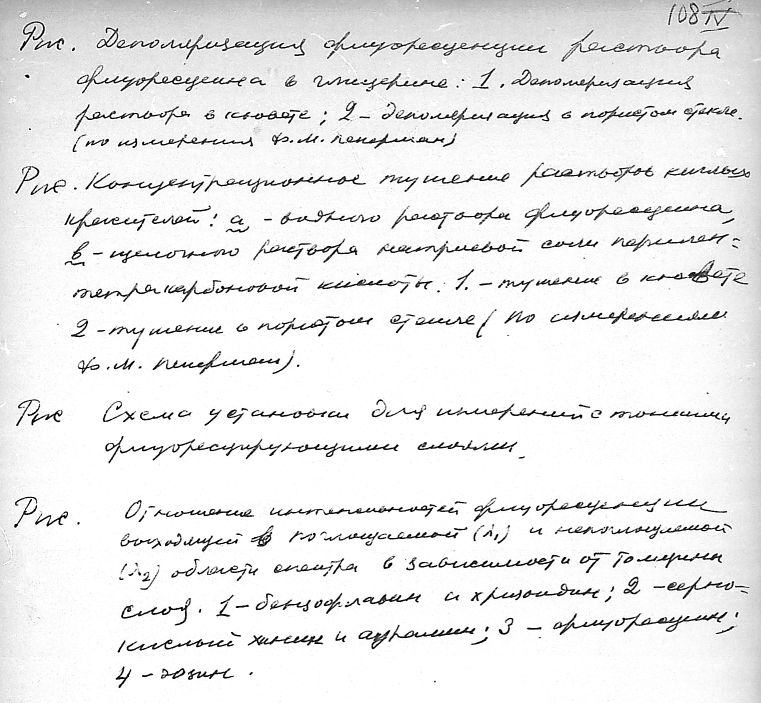 108 IV
Рис. Деполяризация флуоресценции раствора
флуоресцеина в глицерине: 1. Деполяризация
раствора в кювете; 2 – деполяризация в пористом стекле.
(по измерениям Ф.М. Пекерман)
Рис. Концентрационное тушение растворов кислых
красителей: а – водного раствора флуоресцеина,
в – щелочного раствора натриевой соли перилен=
тетракарбоновой кислоты. 1. – тушение в кювете
2 – тушение в пористом стекле (по измерениям
Ф.М. Пекерман).
Рис Схема установки для измерений с тонкими
флуоресцирующими слоями.
Рис. Отношение интенсивностей флуоресценции
выходящей в поглощаемой (λ1) и непоглощаемой
(λ2) области спектра в зависимости от толщины
слоя. 1 – бензофлавин и хризоидин; 2 – серно=
кислый хинин и аурамин; 3 – флуоресцеин;
4 – эозин.